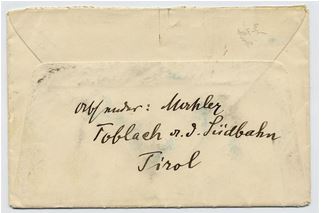 Absender: Mahler
Toblach a. d. Südbahn
Tirol